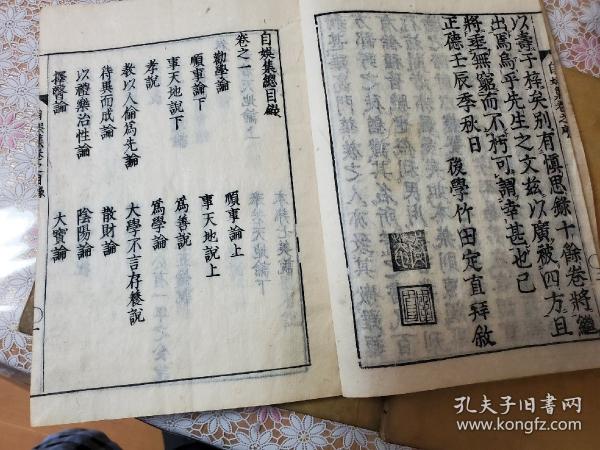 以壽于梓矣別有愼思錄十餘卷將繼
出焉嗚乎先生之文玆以廣被四方且
將垂無窮而不朽可謂幸甚也已
正德壬辰季秋日
後學竹田定直拜敘
自娛集總目錄
卷之一
勸學論
順事論上
順事論下
事天地說上
事天地說下
爲善說
孝說
爲學論
教以人倫爲先論
大學不言存養說
待異而成論
散財論
以禮樂治性論
陰陽論
擇醫論
大寶論
孔夫子旧书网
www.kongfz.com